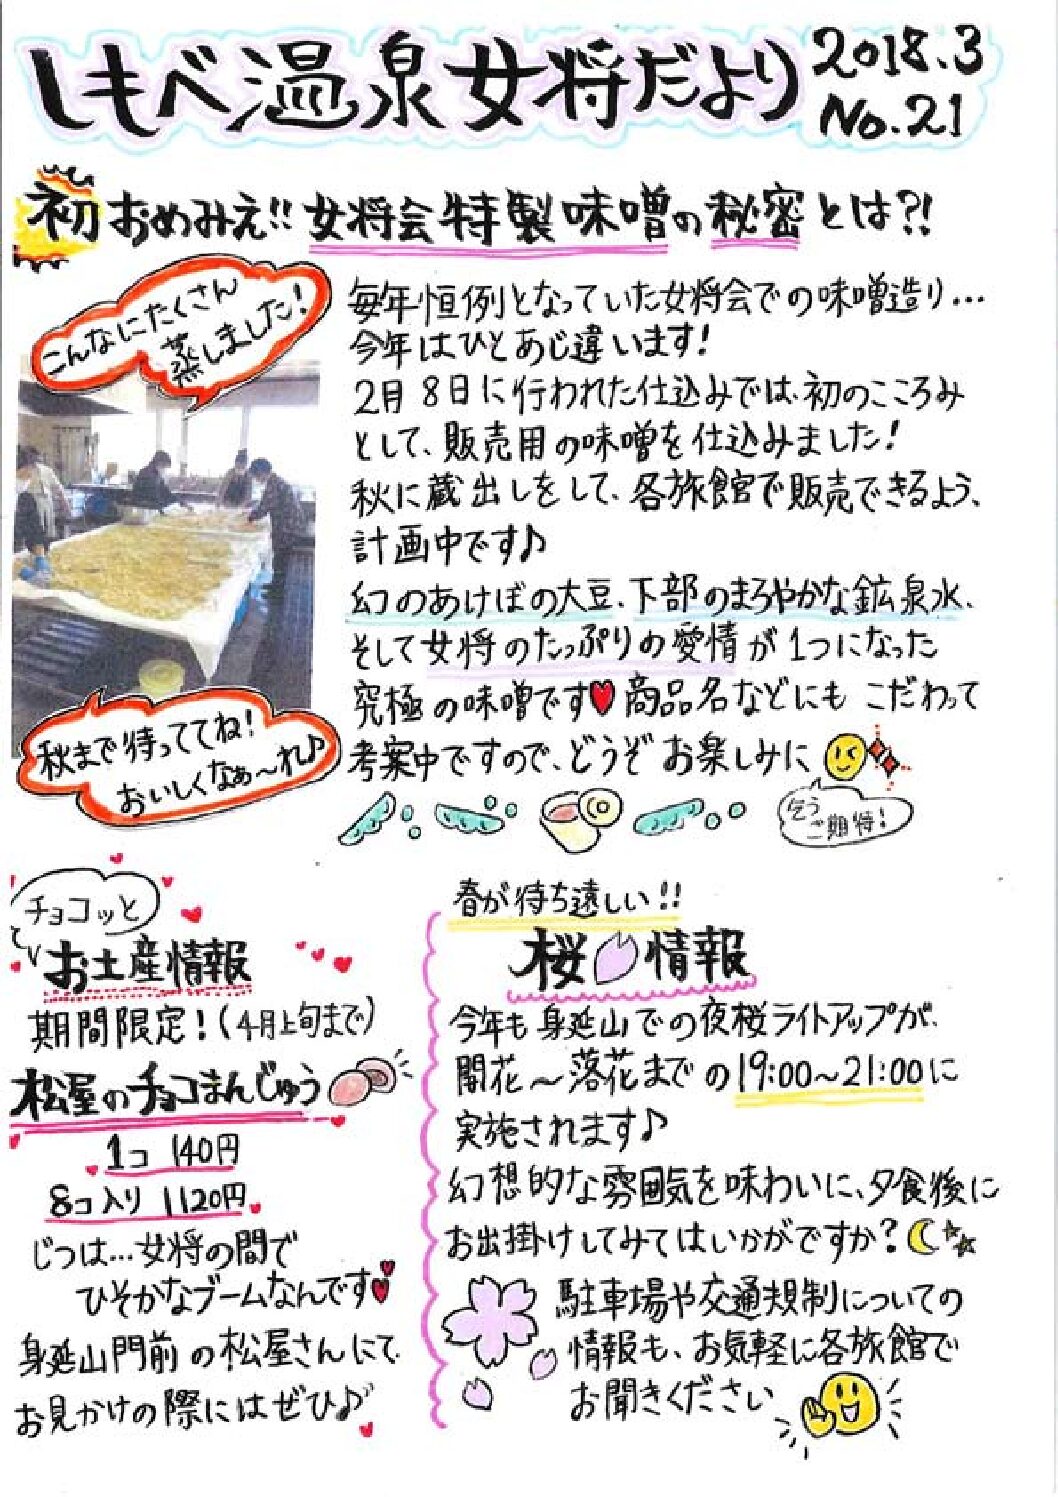 しもべ温泉女将だより
2018.3
No.21
初おめみえ!!女将会特製味噌の秘密とは?!
こんなにたくさん
蒸しました!
毎年恒例となっていた女将会での味噌造り…
今年はひとあじ違います!
2月8日に行われた仕込みでは、初のこころみ
として、販売用の味噌を仕込みました!
秋に蔵出しをして、各旅館で販売できるよう、
計画中です♪
幻のあけぼの大豆、下部のまろやかな鉱泉水、
そして女将のたっぷりの愛情が1つになった
究極の味噌です♥商品名などにもこだわって
考案中ですので、どうぞお楽しみに
秋まで待っててね!
おいしくなぁ〜れ♪
乞う
ご期待!
チョコッと
お土産情報
期間限定!(4月上旬まで)
松屋のチョコまんじゅう
1コ 140円
8コ入り 1120円
じつは…女将の間で
ひそかなブームなんです♥
身延山門前の松屋さんにて、
お見かけの際にはぜひ♪
春が待ち遠しい!!
桜情報
今年も身延山での夜桜ライトアップが、
開花〜落花までの19:00〜21:00に
実施されます♪
幻想的な雰囲気を味わいに、夕食後に
お出掛けしてみてはいかがですか?
駐車場や交通規制についての
情報も、お気軽に各旅館で
お聞きください